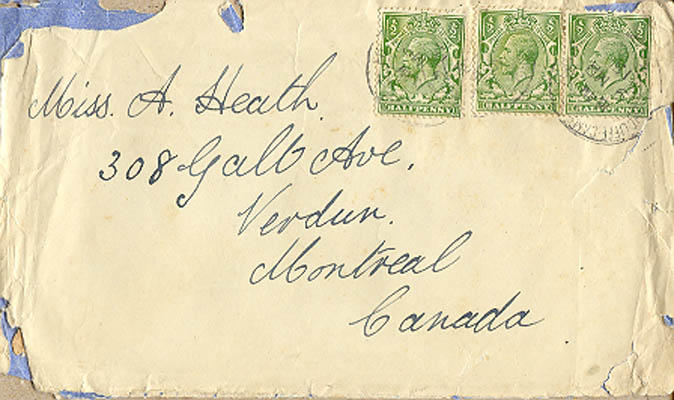 HALFPENNY HALFPENNY HALFPENNY
Miss. A. Heath.
308 Galt Ave.
Verdun.
Montreal
Canada